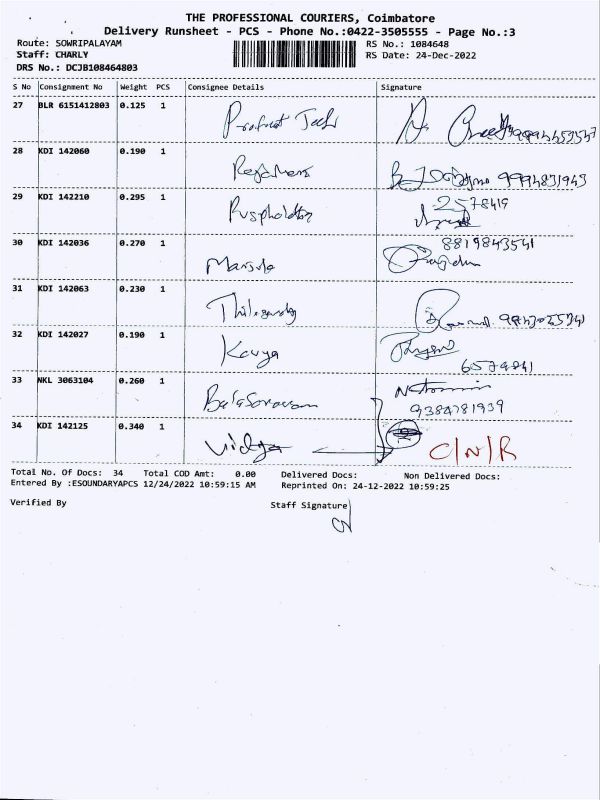 THE PROFESSIONAL COURIERS, Coimbatore
Delivery Runsheet - PCS - Phone No.:0422-3505555 - Page No.:3
Route: SOWRIPALAYAM RS No.: 1084648
Staff: CHARLY RS Date: 24-Dec-2022
DRS No.: DCJB108464803
S No Consignment No Weight PCS Consignee Details Signature
27 BLR 6151412803 0.125 1
28 KDI 142060 0.190 1 9994831943
29 KDI 142210 0.295 1 2578419
30 KDI 142036 0.270 1 8819843541
31 KDI 142063 0.230 1
32 KDI 142027 0.190 1 Kavya
6579841
33 NKL 3063104 0.260 1 Balasaravanan
9384781939
34 KDI 142125 0.340 1 Vidya C/N/R
Total No. Of Docs: 34 Total COD Amt: 0.00 Delivered Docs: Non Delivered Docs:
Entered By :ESOUNDARYAPCS 12/24/2022 10:59:15 AM Reprinted On: 24-12-2022 10:59:25
Verified By Staff Signature